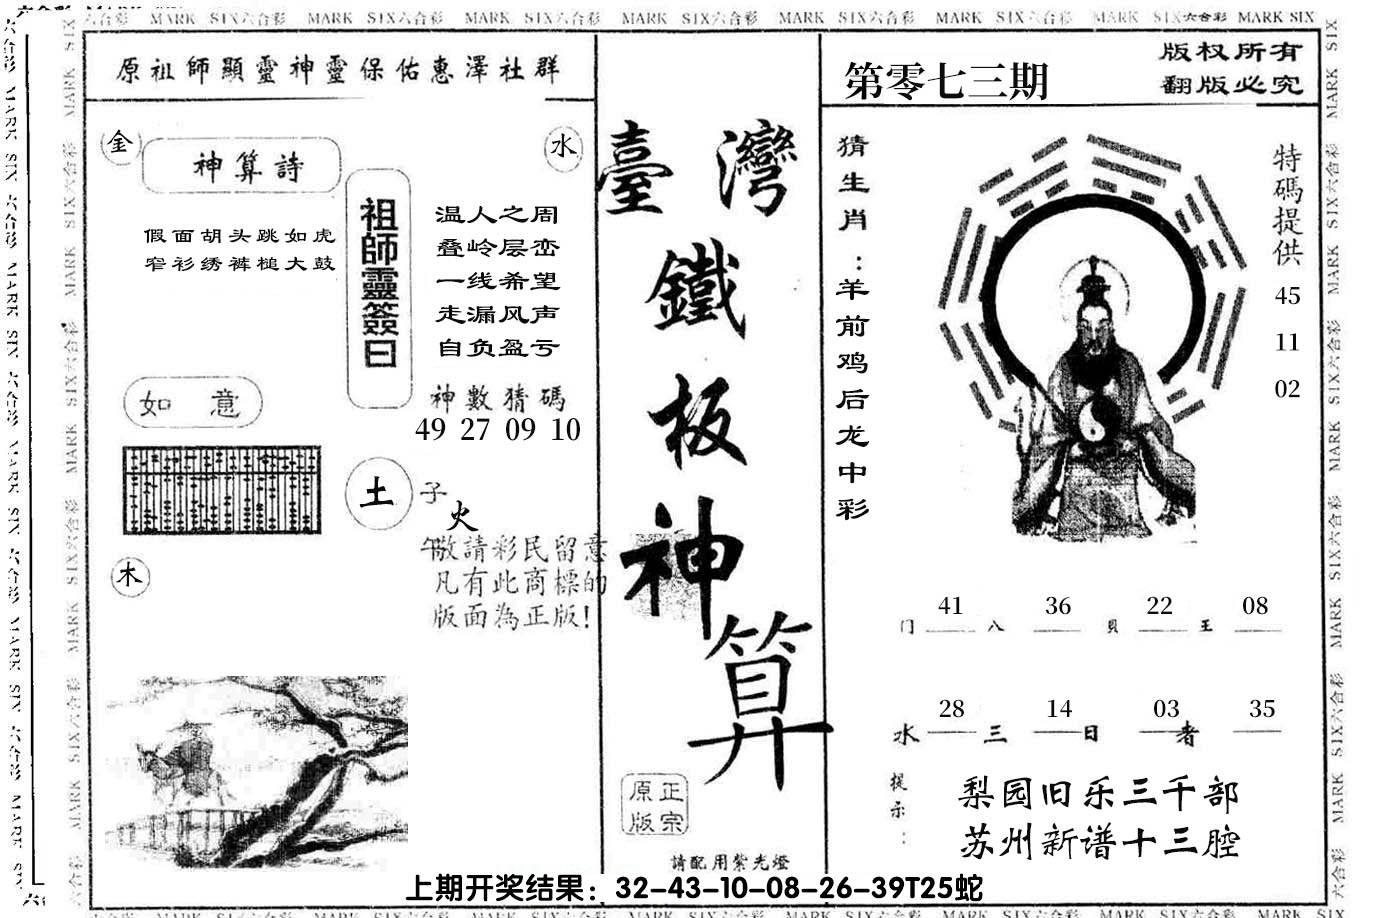 MARK SIX六合彩 MARK SIX六合彩 MARK SIX六合彩 MARK SIX六合彩 MARK SIX六合彩 MARK SIX六合彩 MARK SIX六合彩 MARK SIX
原祖師顯靈神靈保佑惠澤社群
金
神算詩
水
假面胡头跳如虎
窄衫绣裤槌大鼓
祖師靈簽曰
温人之周
叠岭层峦
一线希望
走漏风声
自负盈亏
神數猜碼
49 27 09 10
如意
土
子
火
午
敬請彩民留意
凡有此商標的
版面為正版!
木
臺灣
鐵
板
神
算
正宗
原版
請配用紫光燈
第零七三期
版权所有
翻版必究
猜生肖:羊前鸡后龙中彩
特碼提供
45
11
02
41 36 22 08
门 八 貝 王
28 14 03 35
水 三 日 者
提示:
梨园旧乐三千部
苏州新谱十三腔
上期开奖结果：32-43-10-08-26-39T25蛇